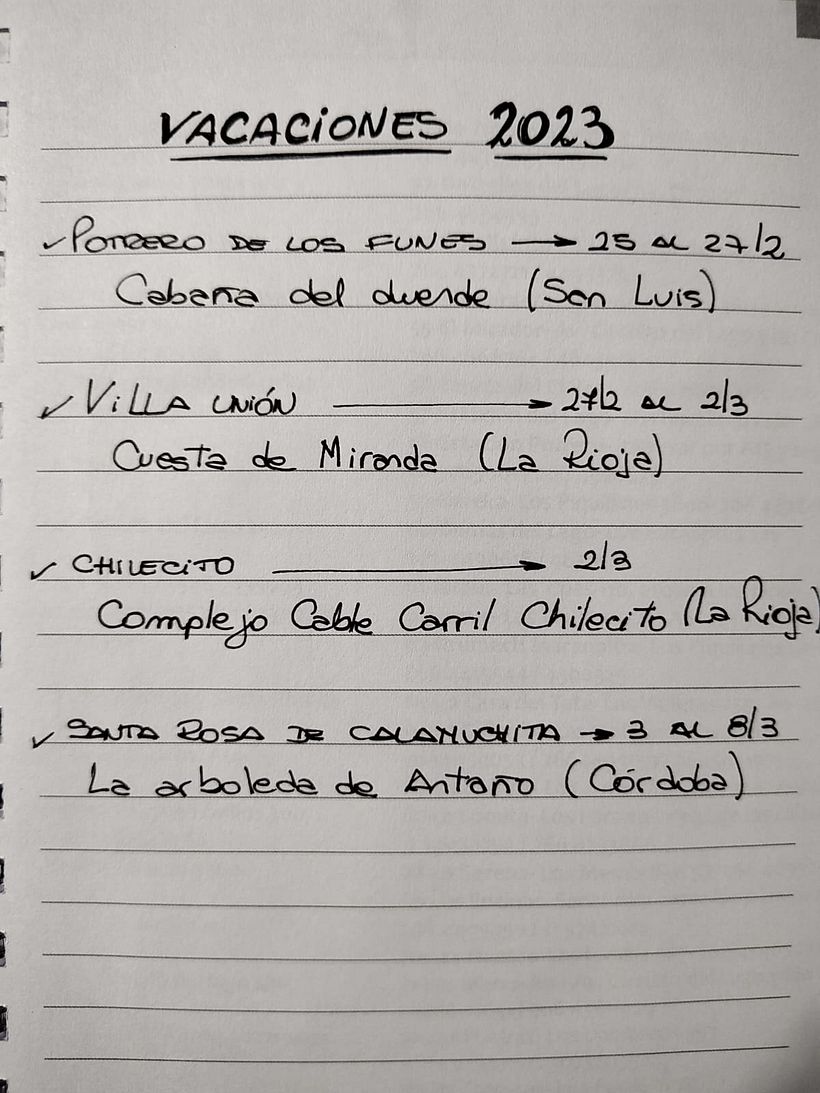 VACACIONES 2023
✓ POTRERO DE LOS FUNES → 25 AL 27/2
Cabaña del duende (San Luis)
✓ VILLA UNIÓN → 27/2 AL 2/3
Cuesta de Miranda (La Rioja)
✓ CHILECITO → 2/3
Complejo Cable Carril Chilecito (La Rioja)
✓ SANTA ROSA DE CALAMUCHITA → 3 AL 8/3
La arboleda de Antaño (Córdoba)